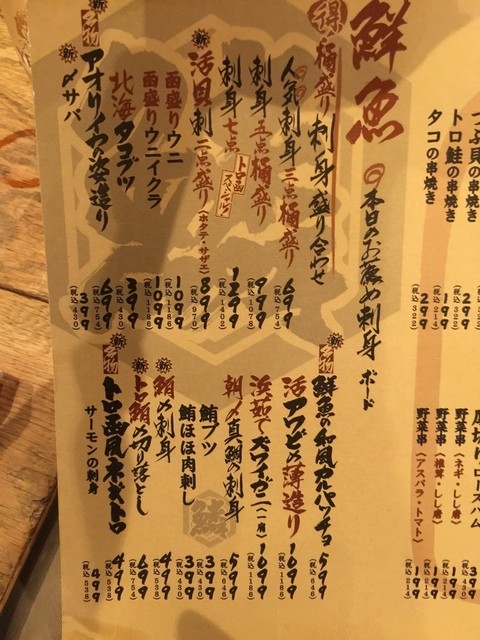 つぶ貝の串焼き 299（税込322）
トロ鮭の串焼き 199（税込214）
タコの串焼き 299（税込322）
厚切りロースハム
野菜串（ネギ・しし唐） 199（税込214）
野菜串（椎茸・しし唐） 199（税込214）
野菜串（アスパラ・トマト） 199（税込214）
鮮魚 本日のお薦め刺身ボード
得 桶盛り 刺身盛り合わせ
人気刺身 三点桶盛り 699（税込754）
刺身 五点桶盛り 999（税込1078）
刺身 七点 トロ函スペシャル 1299（税込1402）
新 活貝刺 二点盛り（ホタテ・サザエ） 899（税込970）
函盛りウニ 1099（税込1186）
函盛りウニイクラ 1099（税込1186）
北海タコブツ 399（税込430）
新 名物 アオリイカの姿造り 699（税込754）
〆サバ 399（税込430）
新 名物 鮮魚の和風カルパッチョ 599（税込646）
活アワビの薄造り 1099（税込1186）
浜茹でズワイガニ（一肩） 1099（税込1186）
朝〆真鯛の刺身 599（税込646）
鮪ブツ 399（税込430）
鮪ほほ肉刺し 399（税込430）
新 鮪の刺身 499（税込538）
新 トロ鮪の切り落とし 699（税込754）
新 名物 トロ函風ネギトロ 499（税込538）
サーモンの刺身 499（税込538）